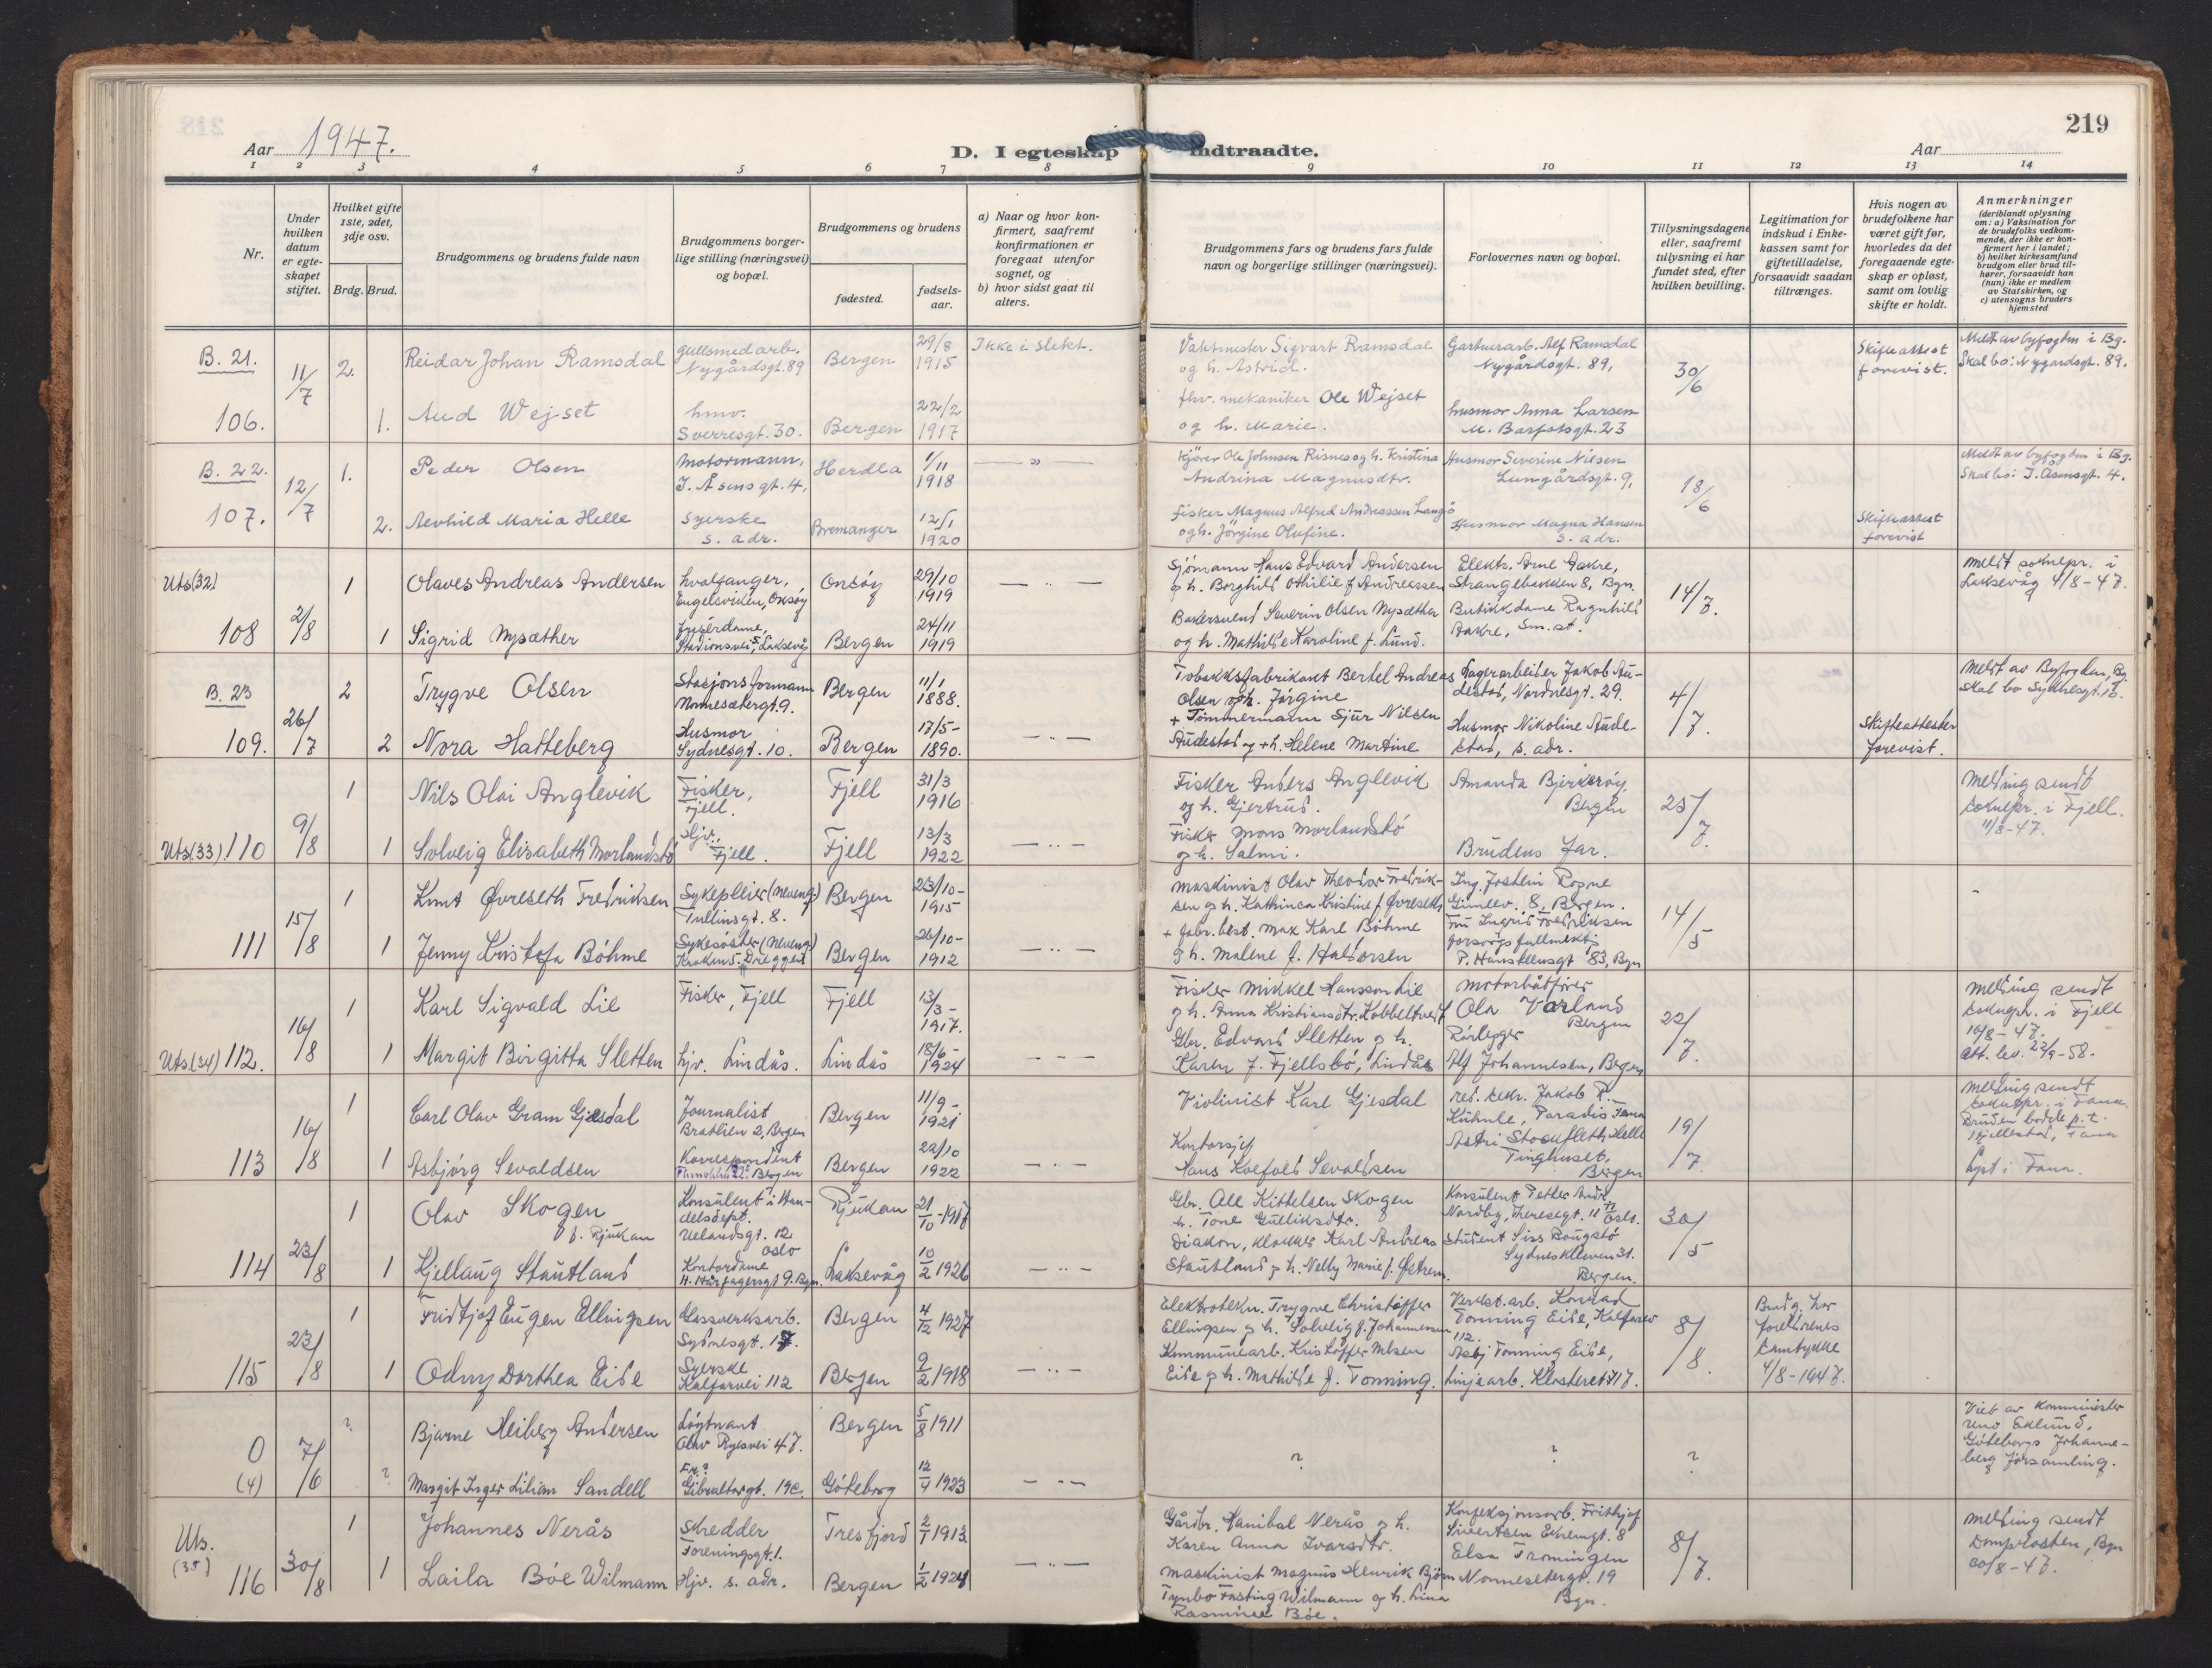 219
Aar 1947.
D. I egteskap
indtraadte.
Aar
1 2 3 4 5 6 7 8 9 10 11 12 13 14
Nr.
Under hvilken datum er egteskapet stiftet.
Hvilket gifte 1ste, 2det, 3dje osv.
Brdg. Brud.
Brudgommens og brudens fulde navn
Brudgommens borgerlige stilling (næringsvei) og bopæl.
Brudgommens og brudens
fødested.
fødselsaar.
a) Naar og hvor konfirmert, saafremt konfirmationen er foregaat utenfor sognet, og
b) hvor sidst gaat til alters.
Brudgommens fars og brudens fars fulde navn og borgerlige stillinger (næringsvei).
Forlovernes navn og bopæl.
Tillysningsdagene eller, saafremt tillysning ei har fundet sted, efter hvilken bevilling.
Legitimation for indskud i Enkekassen samt for giftetilladelse, forsaavidt saadan tiltrænges.
Hvis nogen av brudefolkene har været gift før, hvorledes da det foregaaende egteskap er opløst, samt om lovlig skifte er holdt.
Anmerkninger
(deriblandt oplysning om: a) Vaksination for de brudefolks vedkommende, der ikke er konfirmert her i landet; b) hvilket kirkesamfund brudgom eller brud tilhører, forsaavidt han (hun) ikke er medlem av Statskirken, og c) utensogns bruders hjemsted
B. 21. 11/7 2. Reidar Johan Ramsdal gullsmedarb. Nygårdsgt. 89 Bergen 29/8 1915 Ikke i slekt.
Vaktmester Sigvart Ramsdal og h. Astrid. Gartnerarb. Alf Ramsdal Nygårdsgt. 89, 30/6 Skifteattest forevist. Meldt av byfogden i Bg. Skal bo: Nygårdsgt. 89.
106. 1. Aud Wejset hmv. Sverresgt. 30. Bergen 22/2 1917
fhv. mekaniker Ole Wejset og h. Marie. husmor Anna Larsen M. Barfotsgt. 23
B. 22. 12/7 1. Peder Olsen Motormann, I. Åsens gt. 4, Herdla 1/11 1918 — " —
Kjører Ole Johnsen Risnes og h. Kristina Andrina Magnusdtr. Husmor Severine Nilsen Lungårdsgt. 9, 18/6 Meldt av byfogden i Bg. Skal bo: I. Åsensgt. 4.
107. 2. Aevhild Maria Helle Syerske s. adr. Bremanger 12/1 1920
fisker Magnus Alfred Andreassen Langö og h. Jörgine Olufine. Husmor Magna Hansen s. adr. Skifteattest forevist
Uts(32) 1 Olaves Andreas Andersen hvalfanger, Engelsviken, Onsøy Onsöy 29/10 1919 — " —
Sjömann Hans Edvard Andersen og h. Borghild Othilie f. Andreassen Elektr. Arne Aakre, Strangebakken 8, Bgn. 14/7. meldt soknepr. i Laksevåg 4/8-47.
108 2/8 1 Sigrid Nysæther frisérdame, Stadionsvei 5, Laksevåg Bergen 24/11 1919
Bakersvend Severin Olsen Nysæther og h. Mathilde Karoline f. Lund. Butikkdame Ragnhild Aakre, Sm. st.
B. 23 2 Trygve Olsen Stasjonsformann Nonnesetergt. 9. Bergen 11/1 1888.
Tobakksfabrikant Bertel Andreas Olsen og h. Jörgine Lagerarbeider Jakob Audestad, Nordnesgt. 29. 4/7. Meldt av Byfogden, Bg. Skal bo Sydnesgt. 10.
109. 26/7 2 Nora Hatteberg Husmor Sydnesgt. 10. Bergen 17/5- 1890. — " —
+ Tömmermann Sjur Nilsen Audestad og + h. Helene Martine Husmor Nikoline Audestad, s. adr. Skifteattester forevist.
1 Nils Olai Anglevik Fisker, Fjell. Fjell 31/3 1916
Fisker Anders Anglevik og h. Gjertrud. Amanda Bjerkeröy, Bergen 25/7. Melding sendt soknepr. i Fjell. 11/8-47.
Uts(33). 110 9/8 1 Solveig Elisabeth Morlandstö Hjv., Fjell. Fjell 13/3 1922 — " —
Fisker Mons Morlandstö og h. Salmi. Brudens far.
1 Knut Øvreseth Fredriksen Sykepleier (Neveng.) Tullinsgt. 8. Bergen 23/10- 1915
Maskinist Olav Theodor Fredriksen og h. Kathinca Kristine f. Øvreseth Ing. Jostein Rogne Gimlev. 8, Bergen. 14/5
111 15/8 1 Jenny Kristofa Böhme Sykesöster (Neveng.) Kroken 5. Dreggen Bergen 26/10- 1912 — " —
+ fabr. best. Max Karl Böhme og h. Malene f. Halvorsen Fru Ingrid Fredriksen forsorgsfullmektig P. Hanssensgt 83, Bgn
1 Karl Sigvald Lie Fisker, Fjell Fjell 13/3- 1917.
Fisker Mikkel Hansson Lie og h. Anna Kristiansdtr. Kobbeltvedt motorbåtförer Ola Varland Bergen 22/7. Melding sendt soknepr. i Fjell 16/8-47. Att. lev. 22/9-58.
Uts.(34) 112. 16/8 1 Margit Birgitta Sletten hjv. Lindås. Lindås 18/6- 1924 — - —
Gbr. Edvard Sletten og h. Karen f. Fjellsbö, Lindås Rörlegger Alf Johannesen, Bergen
1 Carl Olav Gram Gjesdal Journalist Bratlien 2, Bergen Bergen 11/9- 1921
Violinist Karl Gjesdal red. sekr. Jakob R. Kühnle, Paradis Fana 19/7. Melding sendt soknepr. i Fana. Bruden bodde p.t. Hjellestad, Fana
113 16/8 1 Asbjörg Sevaldsen Korrespondent Bergen Bergen 22/10 1922 — " —
Kontorsjef Hans Koefoed Sevaldsen Astri Stockfleth Helle Tinghuset, Bergen Lyst i Fana.
1 Olav Skogen f. Rjukan Konsulent i Handelsdept. Uelandsgt. 12 Oslo Rjukan 21/10-1917
Gbr. Ole Kittelsen Skogen h. Tone Gulliksdtr. Konsulent Petter Andr. Nordby, Theresegt. 11 Oslo. 30/5
114 23/8 1 Kjellaug Stautland Kontordame H. Hårfagersgt 9. Bgn. Laksevåg 10/2 1926 — " —
Diakon, klokker Karl Andreas Stautland og h. Nelly Marie f. Østrem. Student Siss Rougstö Sydneskleven 31. Bergen.
1 Fridtjof Eugen Ellingsen Gassverksarb. Sydnesgt. 17. Bergen 4/12 1927
Elektrotekn. Trygve Christoffer Ellingsen og h. Solveig f. Johannessen Verkst. arb. Konrad Tonning Eide, Kalfarvei 112. 8/8. Brudg. har foreldrenes samtykke 4/8-1947.
115 23/8 1 Odny Dorthea Eide Syerske Kalfarvei 112 Bergen 9/2 1918 — " —
Kommunearb. Kristoffer Nilsen Eide og h. Mathilde f. Tonning. Asbj Tonning Eide, Linjearb. Klosteret 17.
? Bjarne Heiberg Andersen Löytnant Olav Ryesvei 47. Bergen 5/8 1911
? ? ? Viet av Komminister Uno Eklund, Göteborgs Johanneberg församling.
0 (4) 7/6 ? Margit Inger Lilian Sandell Fr.? Gibraltargt. 19c. Göteborg 12/4 1923 — " —
Uts. (35) 1 Johannes Nerås Skredder Foreningsgt. 1. Tresfjord 2/1 1913.
Gårdbr. Hanibal Nerås og h. Karen Anna Ivarsdtr. Konfeksjonsarb. Frithjof Sivertsen Ekrengt. 8 8/7. Melding sendt Domprosten, Bgn 30/8-47.
116 30/8 1 Laila Böe Wilmann Hjv. s. adr. Bergen 1/2 1924 — " —
Maskinist Magnus Henrik Björn Tynbo Fasting Wilmann og h. Lina Rasmine Böe. Elsa Fromingen Nonnesetergt. 19 Bgn.